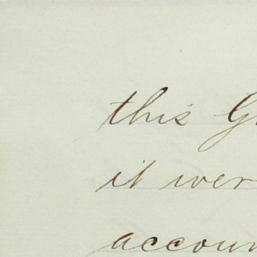 this G
it wer
accoun